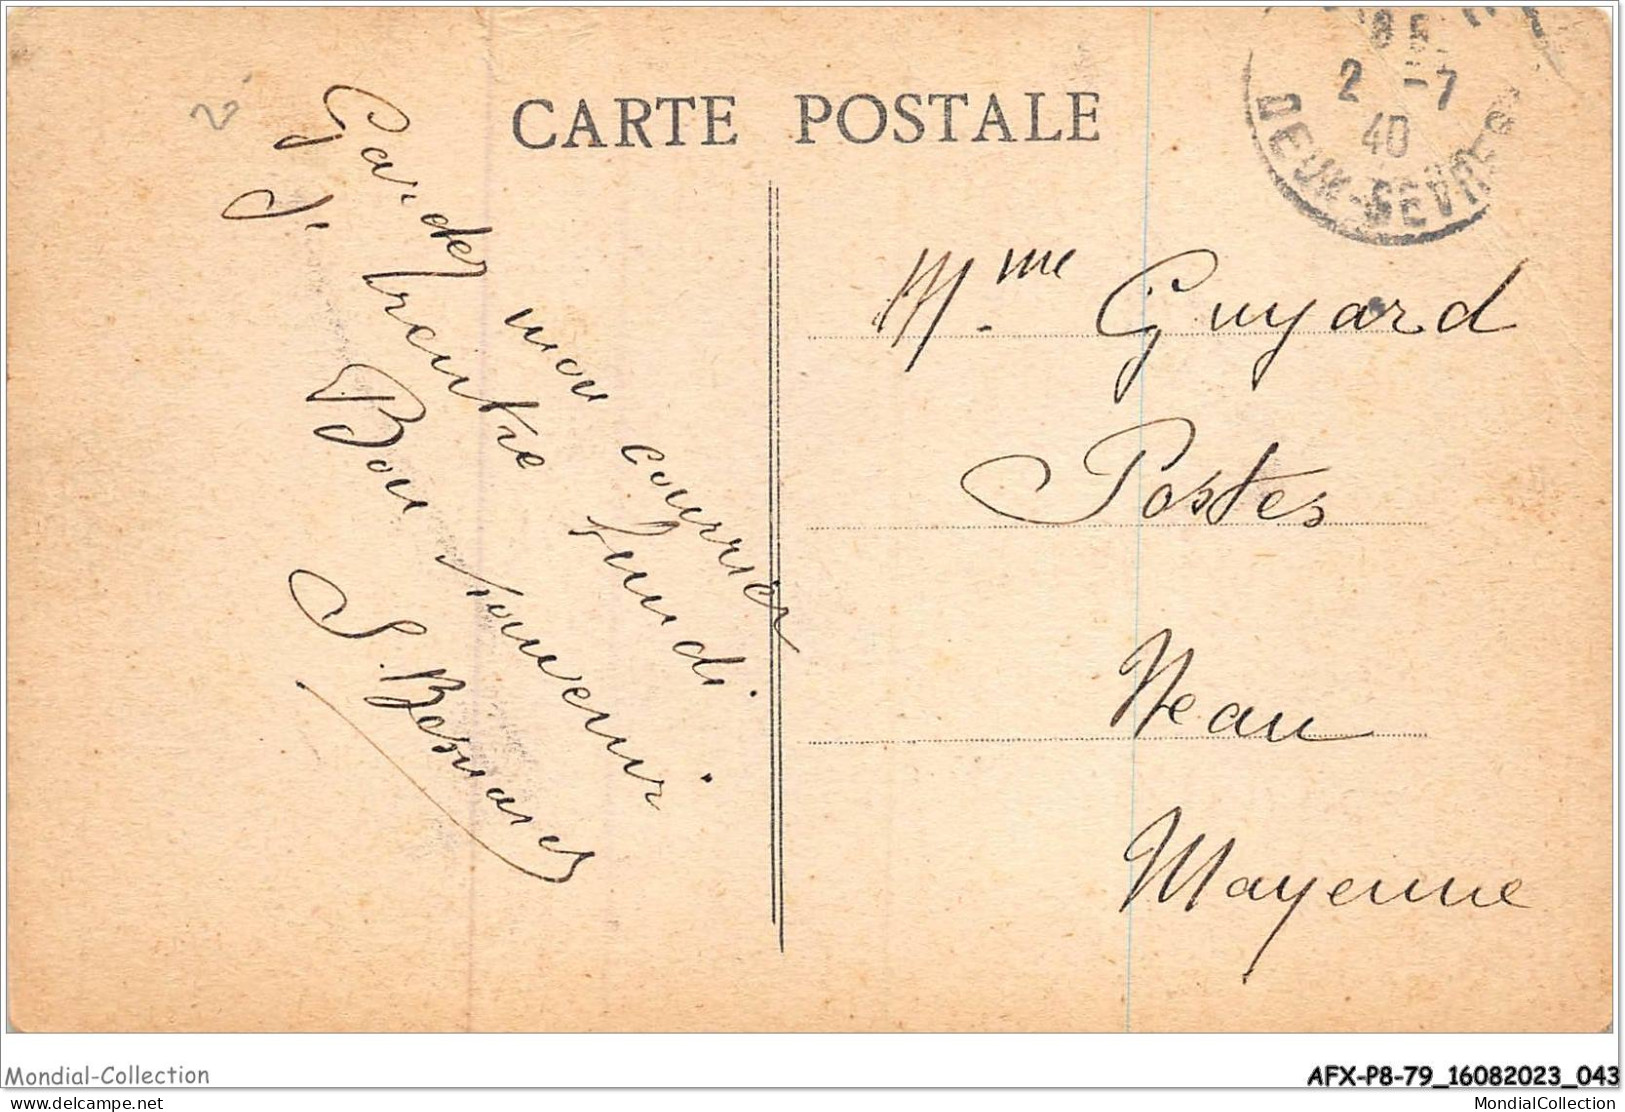 CARTE POSTALE
85
2 -7
40
DEUX-SEVRES
Gardez mon courrier
Je rentre lundi.
Bon souvenir.
S. Besnard
Mme Guyard
Postes
Neau
Mayenne
Mondial-Collection
AFX-P8-79_16082023_043
delcampe.net
MondialCollection